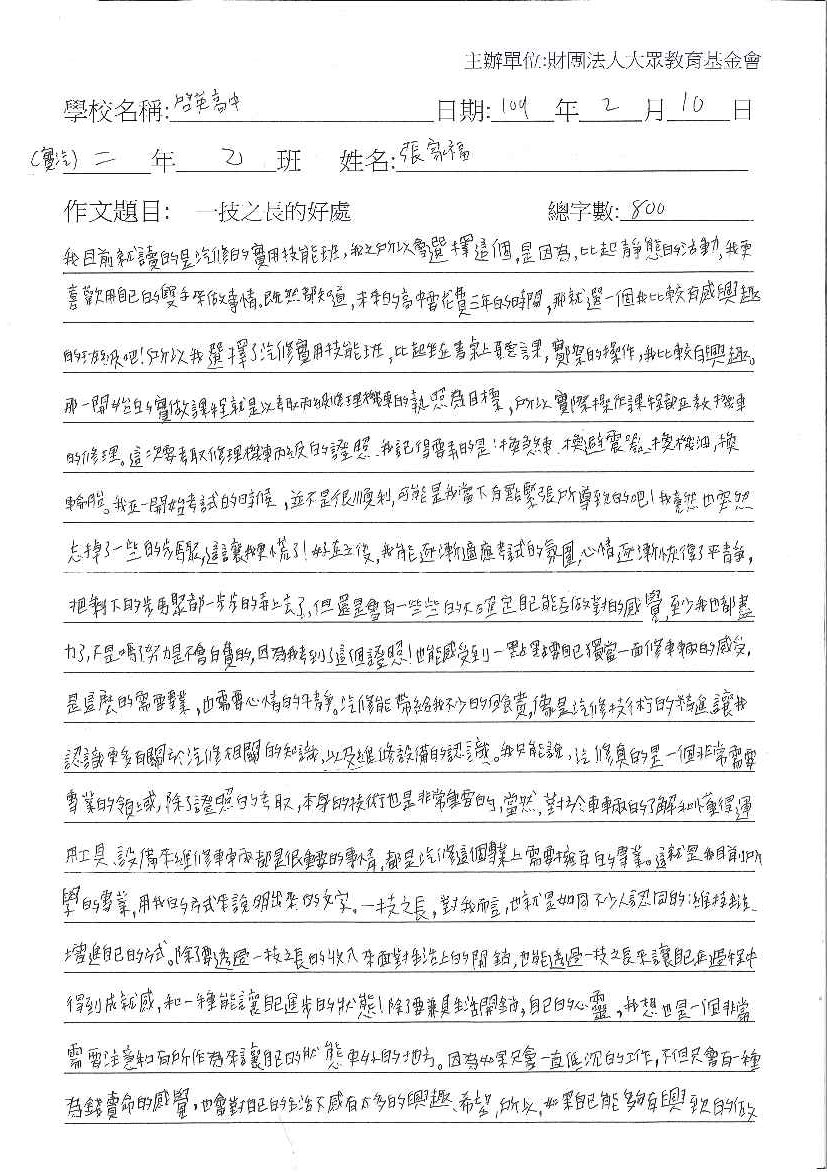 主辦單位:財團法人大眾教育基金會
學校名稱: 啓英高中 日期: 109 年 2 月 10 日
(實汽) 二 年 乙 班 姓名: 張家福
作文題目: 一技之長的好處 總字數: 800
我目前就讀的是汽修的實用技能班,我之所以會選擇這個,是因為,比起靜態的活動,我更
喜歡用自己的雙手來做事情。既然都知道,未來的高中要花費三年的時間,那就選一個我比較有感興趣
的班級吧!所以我選擇了汽修實用技能班,比起坐在書桌上聽課,實際的操作,我比較有興趣。
那一開始的實做課程就是以考取丙級修理機車的執照為目標,所以實際操作課程都在教機車
的修理。這次要考取修理機車丙級的證照、我記得要弄的是:換煞車、換避震器、換機油,換
輪胎。我在一開始考試的時候,並不是很順利,可能是我當下有點緊張所導致的吧!我竟然也突然
忘掉了一些的步驟,這讓我更慌了!好在之後,我能逐漸適應考試的氛圍,心情逐漸恢復了平靜,
把剩下的步驟都一步步的弄上去了,但還是會有一些些的不確定自己能否做對的感覺,至少我也都盡
力了,不是嗎?努力是不會白費的,因為我考到了這個證照!也能感受到一點點要自己獨當一面修車輛的感受,
是這麼的需要專業,也需要心情的平靜。汽修能帶給我不少的回饋,像是汽修技術的精進讓我
認識更多有關於汽修相關的知識,以及維修設備的認識。我只能說,汽修真的是一個非常需要
專業的領域,除了證照的考取,本身的技術也是非常重要的,當然、對於車輛的了解和懂得運
用工具、設備來維修車輛都是很重要的事情,都是汽修這個專業上需要擁有的專業。這就是我目前所
學的專業,用我的方式來說明出來的文字。一技之長,對我而言,也就是如同不少人認同的:維持生活、
增進自己的方式。除了要透過一技之長的收入來面對生活上的開銷,也能透過一技之長來讓自己在過程中
得到成就感,和一種能讓自己進步的狀態!除了要兼具生活開銷,自己的心靈,我想也是一個非常
需要注意和有所作為來讓自己的狀態更好的地方。因為如果只會一直低沉的工作,不但只會有一種
為錢賣命的感覺,也會對自己的生活不感有太多的興趣、希望,所以,如果自己能夠有興致的做